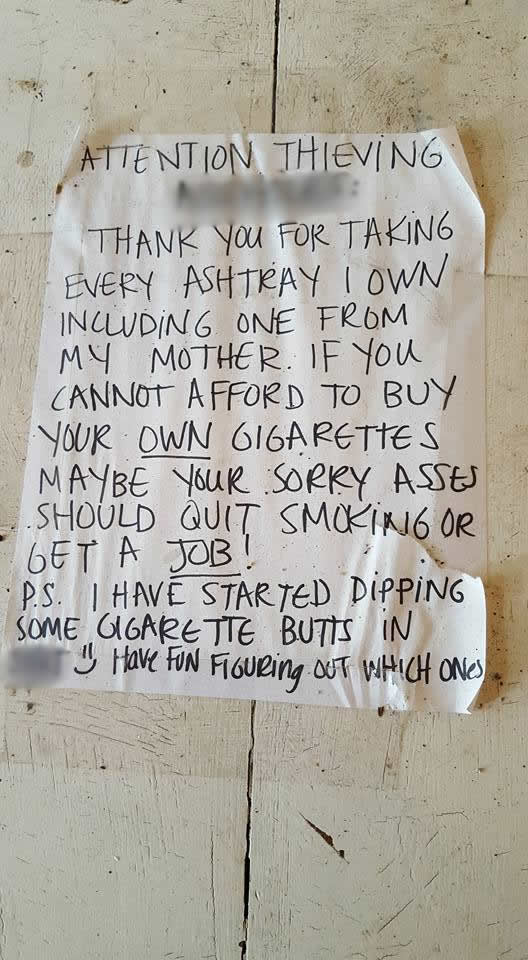 ATTENTION THIEVING
THANK YOU FOR TAKING
EVERY ASHTRAY I OWN
INCLUDING ONE FROM
MY MOTHER. IF YOU
CANNOT AFFORD TO BUY
YOUR OWN CIGARETTES
MAYBE YOUR SORRY ASSES
SHOULD QUIT SMOKING OR
GET A JOB!
P.S. I HAVE STARTED DIPPING
SOME CIGARETTE BUTTS IN
Have FUN FIGURING OUT WHICH ONES